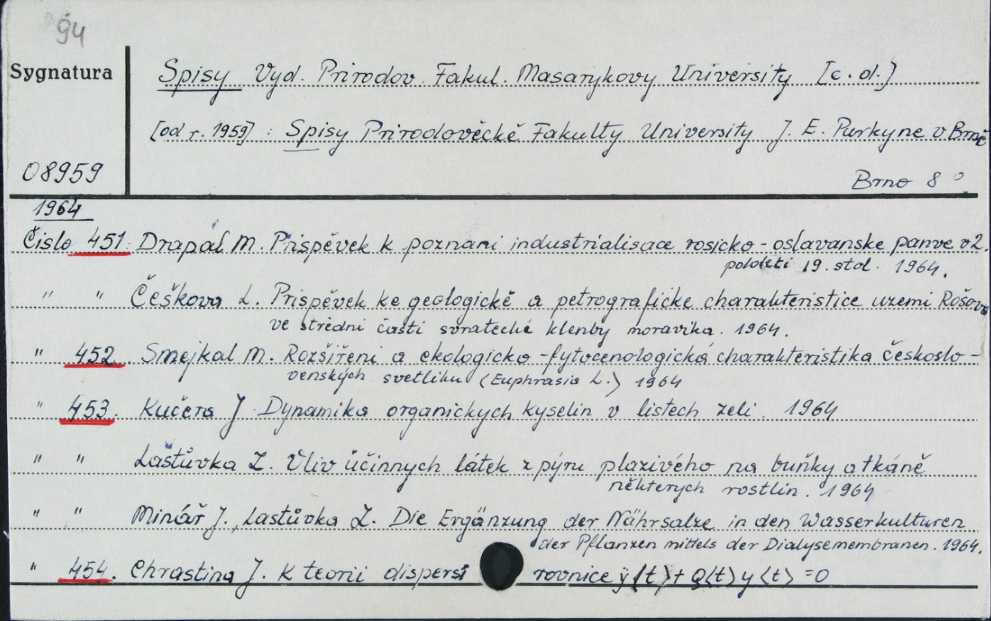 94
Sygnatura
Spisy Vyd. Prirodov. Fakul. Masarykovy University [c. d.]
[od r. 1959] : Spisy Prirodovědcké Fakulty University J. E. Purkyne v Brně
08959
Brno 8°
1964
Čislo 451. Drapal M. Přispěvek k poznani industrialisace rosicko-oslavanske panve v 2.
poldeti 19. stol. 1964.
" " Češkova L. Prispěvek ke geologické a petrograficke charakteristice uzemi Rošova
ve středni časti svratecké klenby moravika. 1964.
" 452. Smejkal M. Rozšířeni a ekologicko-fytocenologická charakteristika českoslo-
venských svetliku (Euphrasia L.) 1964
" 453. Kučera J. Dynamika organickych kyselin v listech zeli. 1964
" " Laštůvka Z. Vliv účinnych látek z pýru plazivého na buňky a tkáně
některych rostlin. 1964
" " Minář J., Lastuvka Z. Die Ergänzung der Nährsalze in den Wasserkulturen
der Pflanzen mittels der Dialysemembranen. 1964.
" 454. Chrastina J. K teorii dispersi rovnice ÿ(t) + Q(t) y(t) = 0